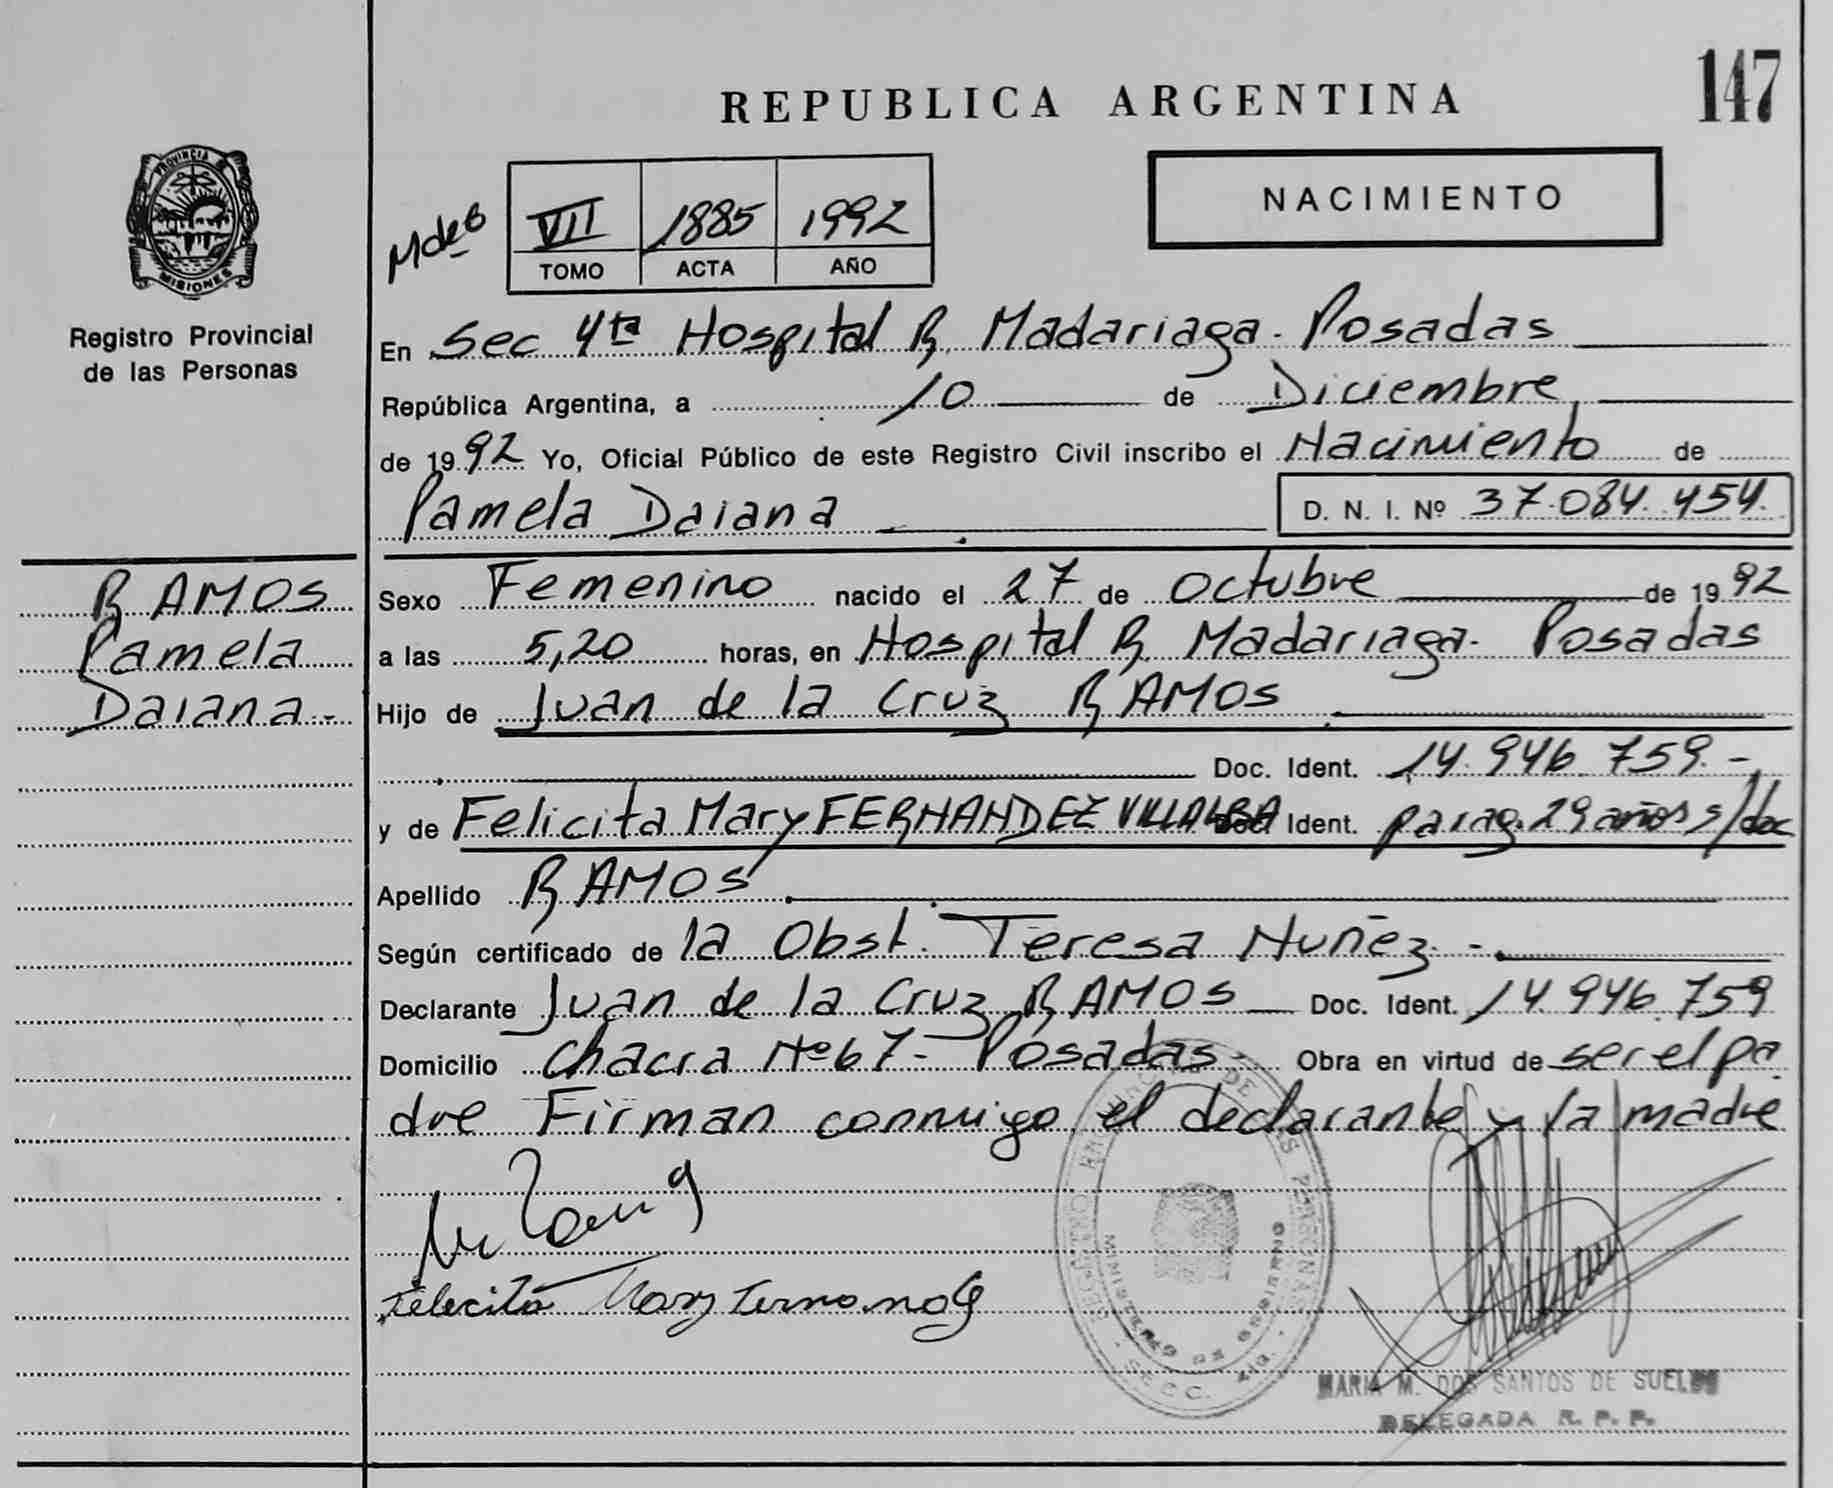 147
REPUBLICA ARGENTINA
NACIMIENTO
PROVINCIA DE
MISIONES
Registro Provincial
de las Personas
VII 1885 1992
TOMO ACTA AÑO
En Sec 4ta Hospital R. Madariaga - Posadas
República Argentina, a 10 de Diciembre
de 1992 Yo, Oficial Público de este Registro Civil inscribo el Nacimiento de
Pamela Daiana D. N. I. Nº 37.084.454.
RAMOS
Pamela
Daiana.-
Sexo Femenino nacido el 27 de Octubre de 1992
a las 5,20 horas, en Hospital R. Madariaga - Posadas
Hijo de Juan de la Cruz RAMOS
Doc. Ident. 14.946.759.-
y de Felicita Mary FERNANDEZ VILLALBA Doc. Ident. parag. 29 años s/doc
Apellido RAMOS
Según certificado de la Obst. Teresa Nuñez.-
Declarante Juan de la Cruz RAMOS Doc. Ident. 14.946.759
Domicilio Chacra Nº 67 - Posadas - Obra en virtud de ser el pa
dre Firman conmigo el declarante y la madre
REGISTRO PROVINCIAL DE LAS PERSONAS
MINISTERIO DE GOBIERNO
SECC. 4ta.
MARIA M. DOS SANTOS DE SUELDO
DELEGADA R. P. P.